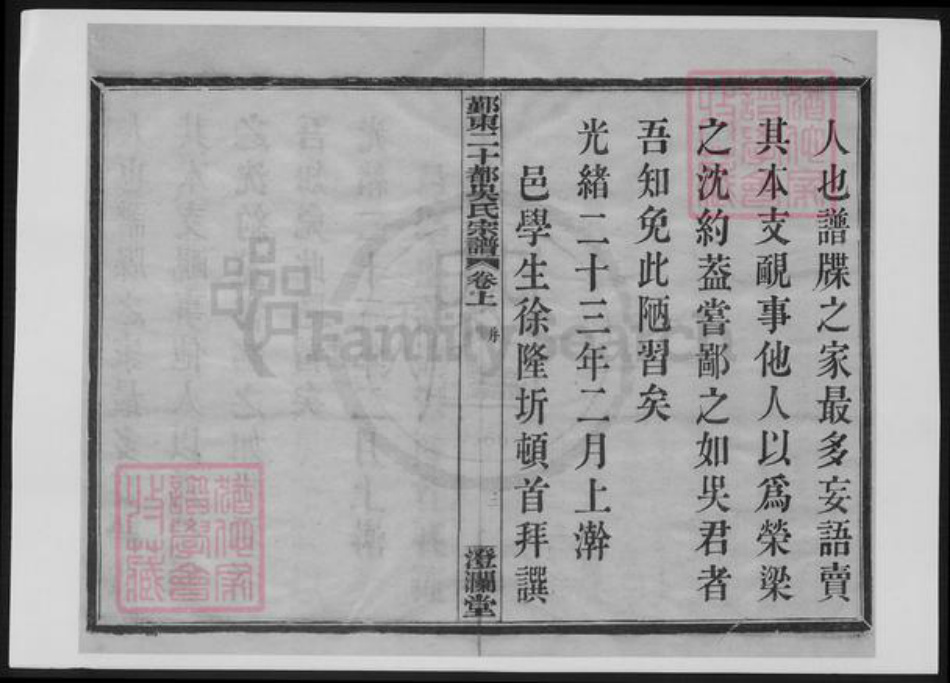 人也譜牒之家最多妄語賣
其本支覼事他人以爲榮梁
之沈約葢嘗鄙之如吳君者
吾知免此陋習矣
光緒二十三年二月上澣
邑學生徐隆圻頓首拜譔
鄞東二十都吳氏宗譜 卷上 序 三
澄瀾堂
猶他家
譜學會
收藏
FamilySearch
猶他家
譜學會
收藏